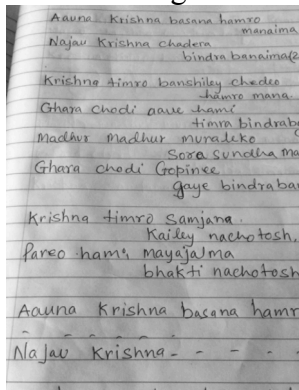 Aauna Krishna basana hamro
manaima
Najau Krishna chadera
bindra banaima(2
Krishna timro banshiley chedeo
hamro mana.
Ghara chodi aaue hami
timra bindrab
Madhur madhur muraleko
Sora sundha ma
Ghara chodi Gopinee
gaye bindraban
Krishna timro samjana.
Kailey nachotosh,
Pareo hami mayajalma
bhakti nachotosh
Aauna Krishna basana hamr
Najau Krishna - - - -